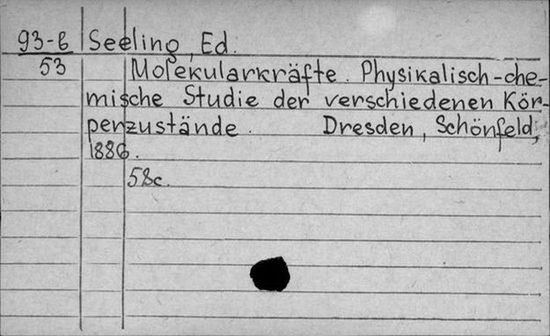 93-6 Seeling, Ed.
53 Molekularkräfte. Physikalisch-che-
mische Studie der verschiedenen Kör-
perzustände. Dresden, Schönfeld,
1886.
58c.